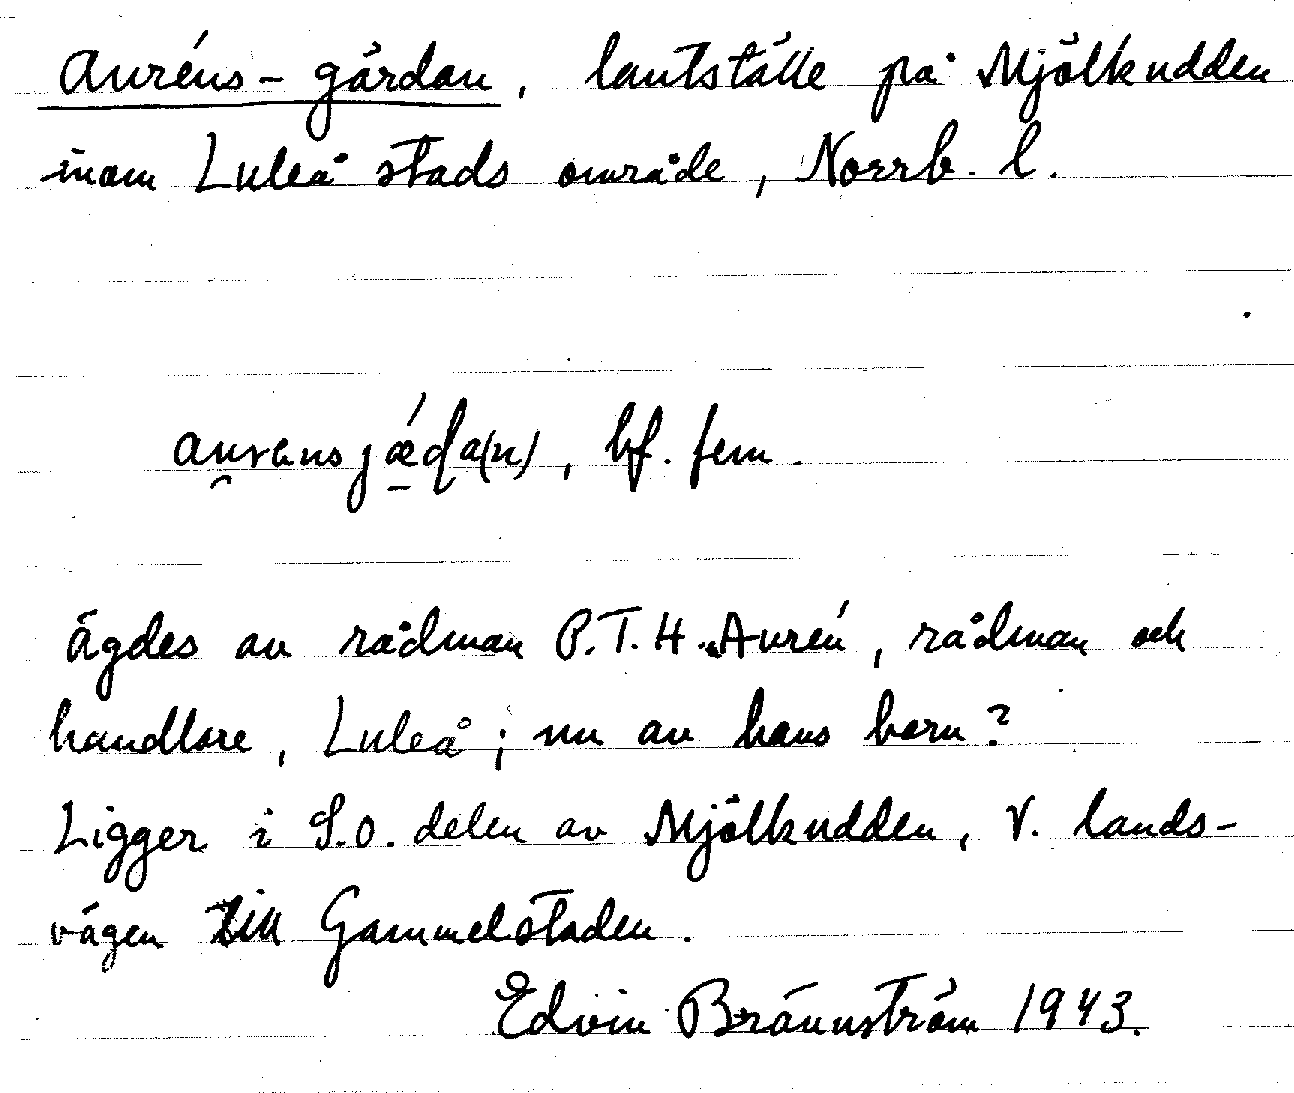 Auréns-gårdan, lantställe på Mjölkudden
inom Luleå stads område, Norrb. l.
bf. fem.
Ägdes av rådman P.T.H. Aurén, rådman och
handlare, Luleå; nu av hans barn?
Ligger i S.O. delen av Mjölkudden, V. lands-
vägen till Gammelstaden.
Edvin Brännström 1943.